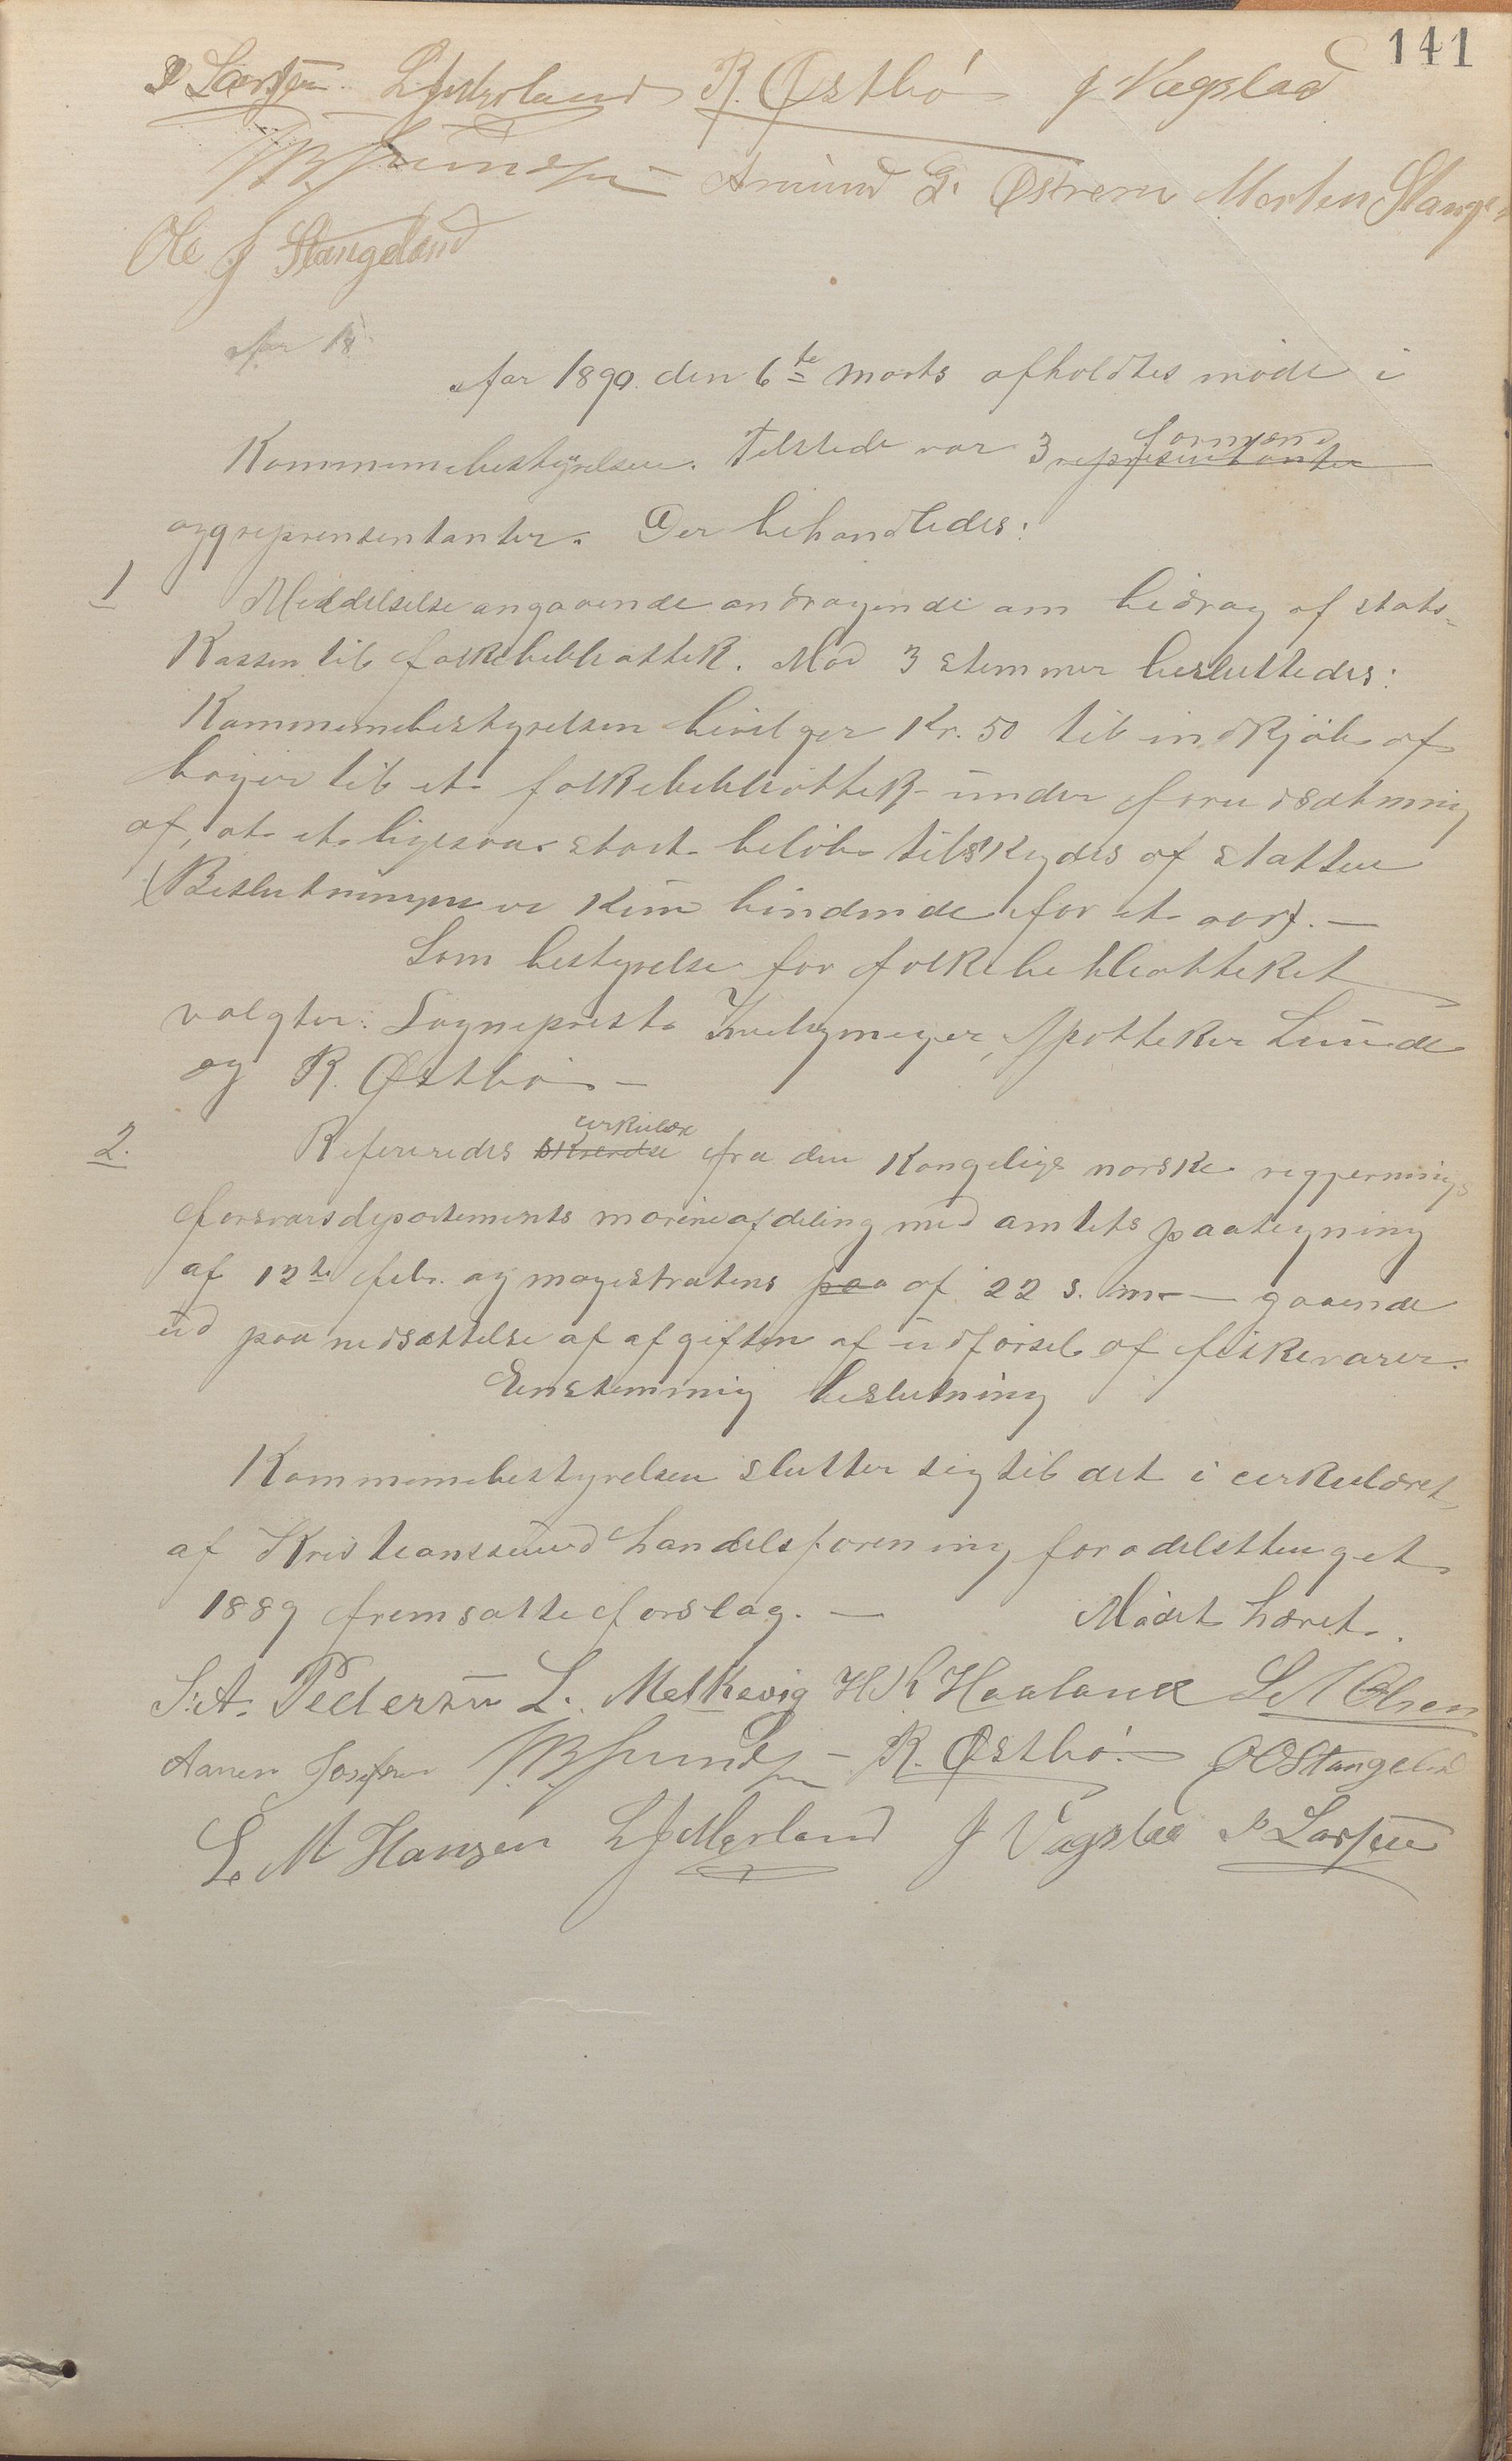 141
P Larsen L J Myrland R. Østbö J Vagslad
Amund G. Østrem Morten Stange
Ole J Stangeland
Aar 18
Aar 1890 den 6te marts afholdtes möde i
Kommunebestyrelsen. Tilstede var 3 representanter formænd
og 9 reprensentanter. Der behandledes:
1 Meddelselse angaaende andragende om bidrag af stats-
kassen til folkebibliottek. Mod 3 stemmer besluttedes:
Kommunebestyrelsen bevilger Kr. 50 til indkjöb af
böger til et folkebibliottek under forudsætning
af, at et ligesaa stort belöb tilskydes af statten
(Beslutningen er kun bindende for et aar). —
Som bestyrelse for folkebibliotteket
valgtes: Sogneprest Apotteker Lunde
og R. Østbö —
2. Refereredes skrivelse cirkulære fra den kongelige norske regjernings
forsvarsdepartements marineafdeling med amtets paategning
af 12te febr. og magistratens paa af 22 s. m. — gaaende
ud paa nedsættelse af afgiften af udförsel af fiskevarer.
Enstemmig beslutning
Kommunebestyrelsen slutter sig til det i cirkulæret
af Kristianssund handelsforening for odelsttinget
1889 fremsatte forslag. — Mödet hævet.
S. A. Pedersen L. Melkevig H K Haaland L A Olsen
Aanen Josefsen R. Østbö. O E Stangeland
L. M Hansen L J Myrland J Vagslad P Larsen